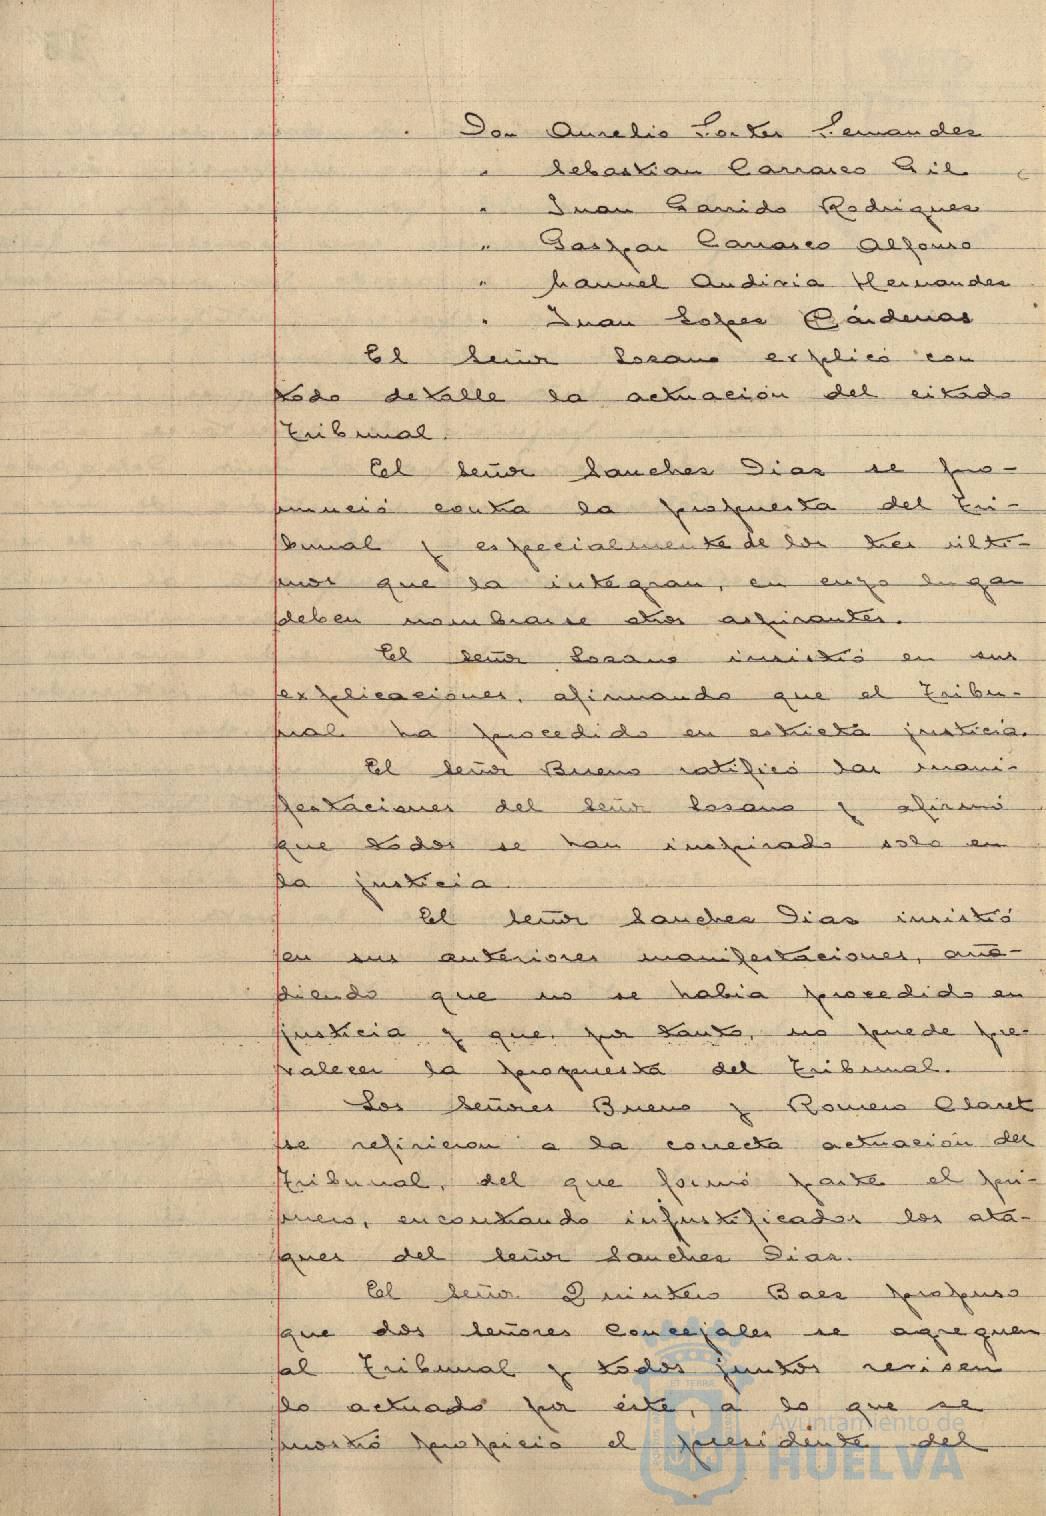 Don Aurelio Fortes Fernandez
" Sebastian Carrasco Gil
" Juan Garrido Rodriguez
" Gaspar Carrasco Alfonso
" Manuel Andivia Hernandez
" Juan Lopez Cárdenas
El Señor Lozano explicó con
todo detalle la actuación del citado
Tribunal.
El Señor Sanchez Diaz se pro-
nunció contra la propuesta del Tri-
bunal y especialmente de los tres ulti-
mos que la integran, en cuyo lugar
deben nombrarse otros aspirantes.
El Señor Lozano insistió en sus
explicaciones, afirmando que el Tribu-
nal ha procedido en estricta justicia.
El Señor Bueno ratificó las mani-
festaciones del Señor Lozano y afirmó
que todos se han inspirado solo en
la justicia
El Señor Sanchez Diaz insistió
en sus anteriores manifestaciones, aña-
diendo que no se habia procedido en
justicia y que, por tanto, no puede pre-
valecer la propuesta del Tribunal.
Los Señores Bueno y Romero Claret
se refirieron a la correcta actuación del
Tribunal, del que formó parte el pri-
mero, encontrando injustificados los ata-
ques del Señor Sanchez Diaz.
El Señor Quintero Baez propuso
que dos Señores Concejales se agreguen
al Tribunal y todos juntos revisen
lo actuado por éste, a lo que se
mostró propicio el presidente del
Ayuntamiento de
HUELVA